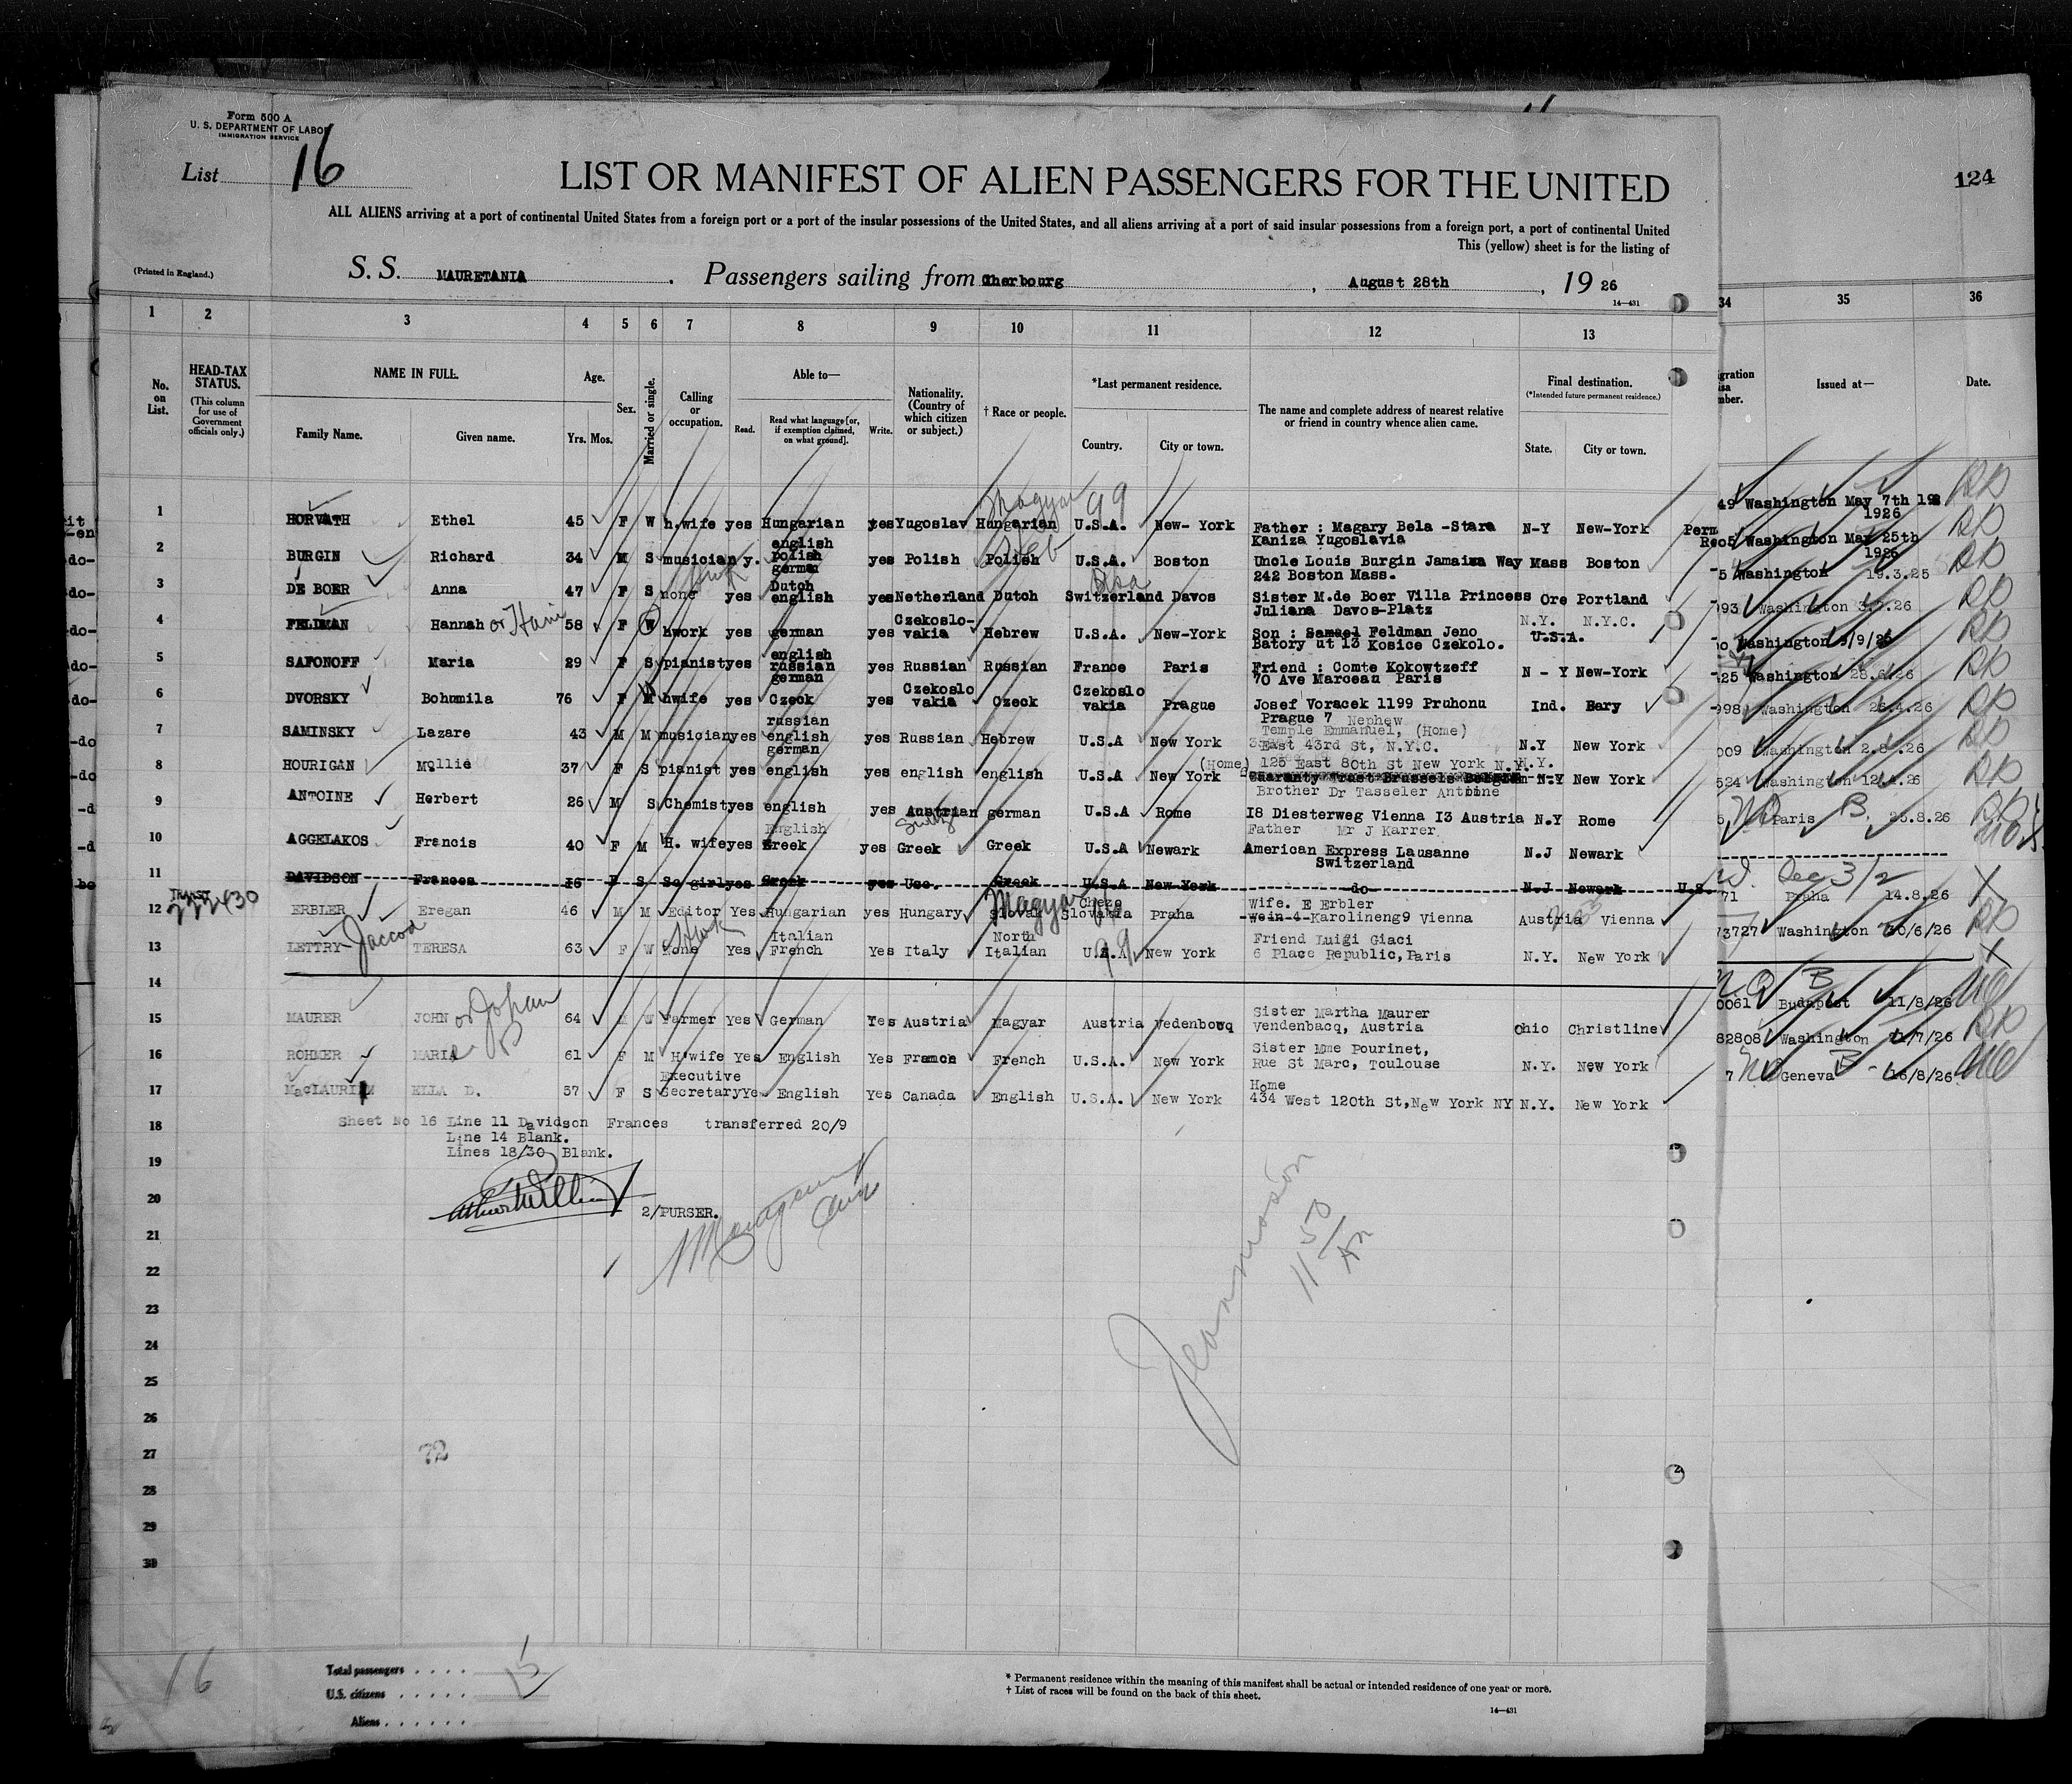 Form 500 A
U. S. DEPARTMENT OF LABOR
IMMIGRATION SERVICE
List 16
124
LIST OR MANIFEST OF ALIEN PASSENGERS FOR THE UNITED
ALL ALIENS arriving at a port of continental United States from a foreign port or a port of the insular possessions of the United States, and all aliens arriving at a port of said insular possessions from a foreign port, a port of continental United
This (yellow) sheet is for the listing of
(Printed in England.)
S. S. MAURETANIA. Passengers sailing from Cherbourg, August 28th, 19 26
14—431
1 2 3 4 5 6 7 8 9 10 11 12 13 34 35 36
No. on List.
HEAD-TAX STATUS.
(This column for use of Government officials only.)
NAME IN FULL.
Family Name. Given name.
Age.
Yrs. Mos.
Sex.
Married or single.
Calling or occupation.
Able to—
Read. Read what language [or, if exemption claimed, on what ground]. Write.
Nationality. (Country of which citizen or subject.)
† Race or people.
*Last permanent residence.
Country. City or town.
The name and complete address of nearest relative or friend in country whence alien came.
Final destination.
(*Intended future permanent residence.)
State. City or town.
Issued at—
Date.
1 HORVATH Ethel 45 F W h.wife yes Hungarian yes Yugoslav Hungarian Magyar U.S.A. 99 New-York Father : Magary Bela -Stara Kaniza Yugoslavia N-Y New-York Perm 49 Washington May 7th 1926
2 BURGIN Richard 34 M S musician y. english polish german yes Polish Polish Heb U.S.A. Boston Uncle Louis Burgin Jamaica Way 242 Boston Mass. Mass Boston Reo5 Washington May 25th 1926
3 DE BOER Anna 47 F S none yes Dutch english yes Netherland Dutch Switzerland Davos Sister M.de Boer Villa Princess Juliana Davos-Platz Ore Portland 5 Washington 19.3.25
4 FELDMAN Hannah or Hani 58 F W hwork yes german yes Czekoslovakia Hebrew U.S.A. New-York Son : Samuel Feldman Jeno Batory ut 13 Kosice Czekolo. N.Y. N.Y.C. U.S.A. 993 Washington 3.7.26
5 SAFONOFF Maria 29 F S pianist yes english russian german yes Russian Russian France Paris Friend : Comte Kokowtzeff 70 Ave Marcean Paris N - Y New-York Washington 9/9/26
6 DVORSKY Bohumila 76 F M hwife yes Czeck yes Czekoslo vakia Czeck Czekoslo vakia Prague Josef Voracek 1199 Pruhonu Prague 7 Nephew Ind. Gary 25 Washington 28.6.26
7 SAMINSKY Lazare 43 M M musician yes russian english german yes Russian Hebrew U.S.A New York Temple Emmanuel, (Home) East 43rd St, N.Y.C. N.Y New York 998 Washington 26.4.26
8 HOURIGAN Mollie 37 F S pianist yes english yes english english U.S.A New York (Home) 125 East 80th St New York N.Y. Guaranty Trust Brussels Belgium N-Y New York 009 Washington 2.8.26
9 ANTOINE Herbert 26 M S Chemist yes english yes Austrian german U.S.A Rome Brother Dr Tasseler Antoine 18 Diesterweg Vienna 13 Austria N.Y Rome 524 Washington 12.4.26
10 AGGELAKOS Francis 40 F M H. wife yes English Greek yes Greek Greek U.S.A Newark Father Mr J Karrer American Express Lausanne Switzerland N.J Newark Paris 25.8.26
11 DAVIDSON Frances 16 F S Sc girl yes Greek yes Usc. Greek U.S.A New York -do- N.J Newark U.S.
TRANSIT
12 ERBLER Eregan 46 M M Editor Yes Hungarian yes Hungary Slovak Magyar Checo Slovakia Praha Wife. E Erbler -wein-4-Karolineng9 Vienna Austria Vienna 71 Praha 14.8.26
13 LETTRY Jaccod TERESA 63 F W None Yes Italian French Yes Italy North Italian U.S.A 99 New York Friend Luigi Giaci 6 Place Republic, Paris N.Y. New York 73727 Washington 30/6/26
14
15 MAURER JOHN or Johan 64 M W Farmer Yes German Yes Austria Magyar Austria Vedenbouq Sister Martha Maurer Vendenbacq, Austria Ohio Christline 0061 Budapest 11/8/26
16 ROHMER MARIA 61 F M H'wife Yes English Yes France French U.S.A. New York Sister Mme Pourinet, Rue St Marc, Toulouse N.Y. New York 82808 Washington 21/7/26
17 MacLAURIN ELLA D. 57 F S Executive Secretary Yes English Yes Canada English U.S.A. New York Home 434 West 120th St, New York NY N.Y. New York 7 Geneva 16/8/26
18 Sheet No 16 Line 11 Davidson Frances transferred 20/9
Line 14 Blank.
Lines 18/30 Blank.
19
20 2/PURSER.
21
22
23
24
25
26
27 72
28
29
30
16
Total passengers . . . . 15
U.S. citizens . . . . .
Aliens . . . . . .
* Permanent residence within the meaning of this manifest shall be actual or intended residence of one year or more.
† List of races will be found on the back of this sheet.
14—431